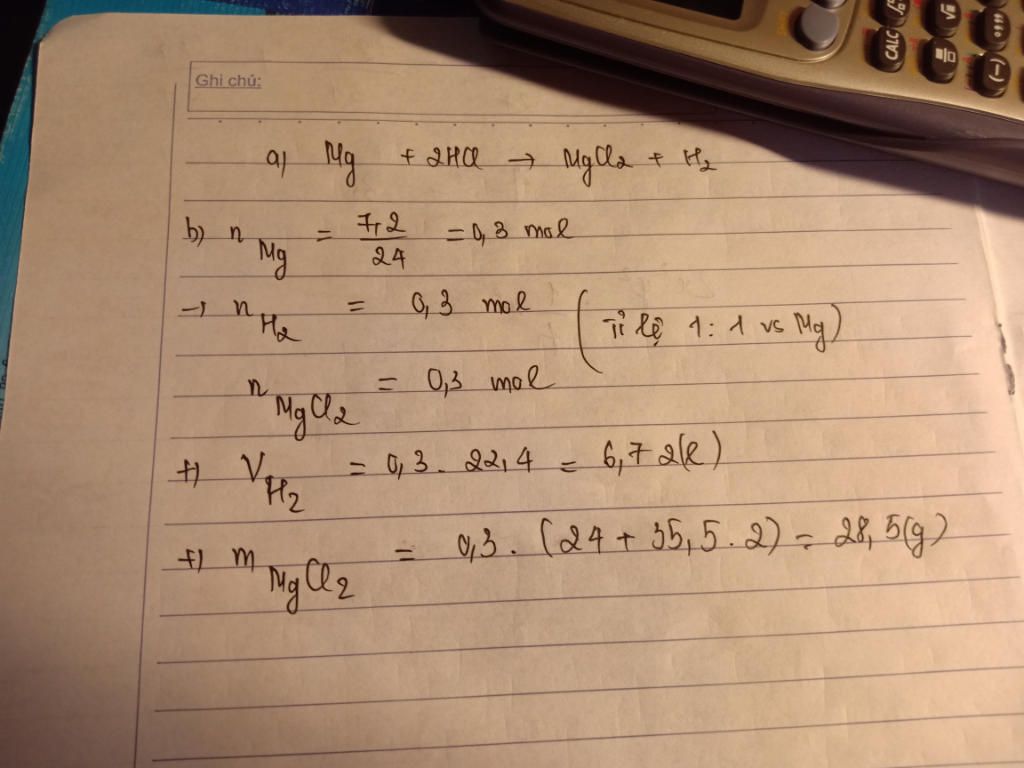 CALC
√▫
(−)
Ghi chú:
a) Mg + 2HCl → MgCl2 + H2
b) n Mg = 7,2 / 24 = 0,3 mol
→ n H2 = 0,3 mol (Tỉ lệ 1 : 1 vs Mg)
n MgCl2 = 0,3 mol
+) V H2 = 0,3 . 22,4 = 6,72(l)
+) m MgCl2 = 0,3 . (24 + 35,5 . 2) = 28,5(g)